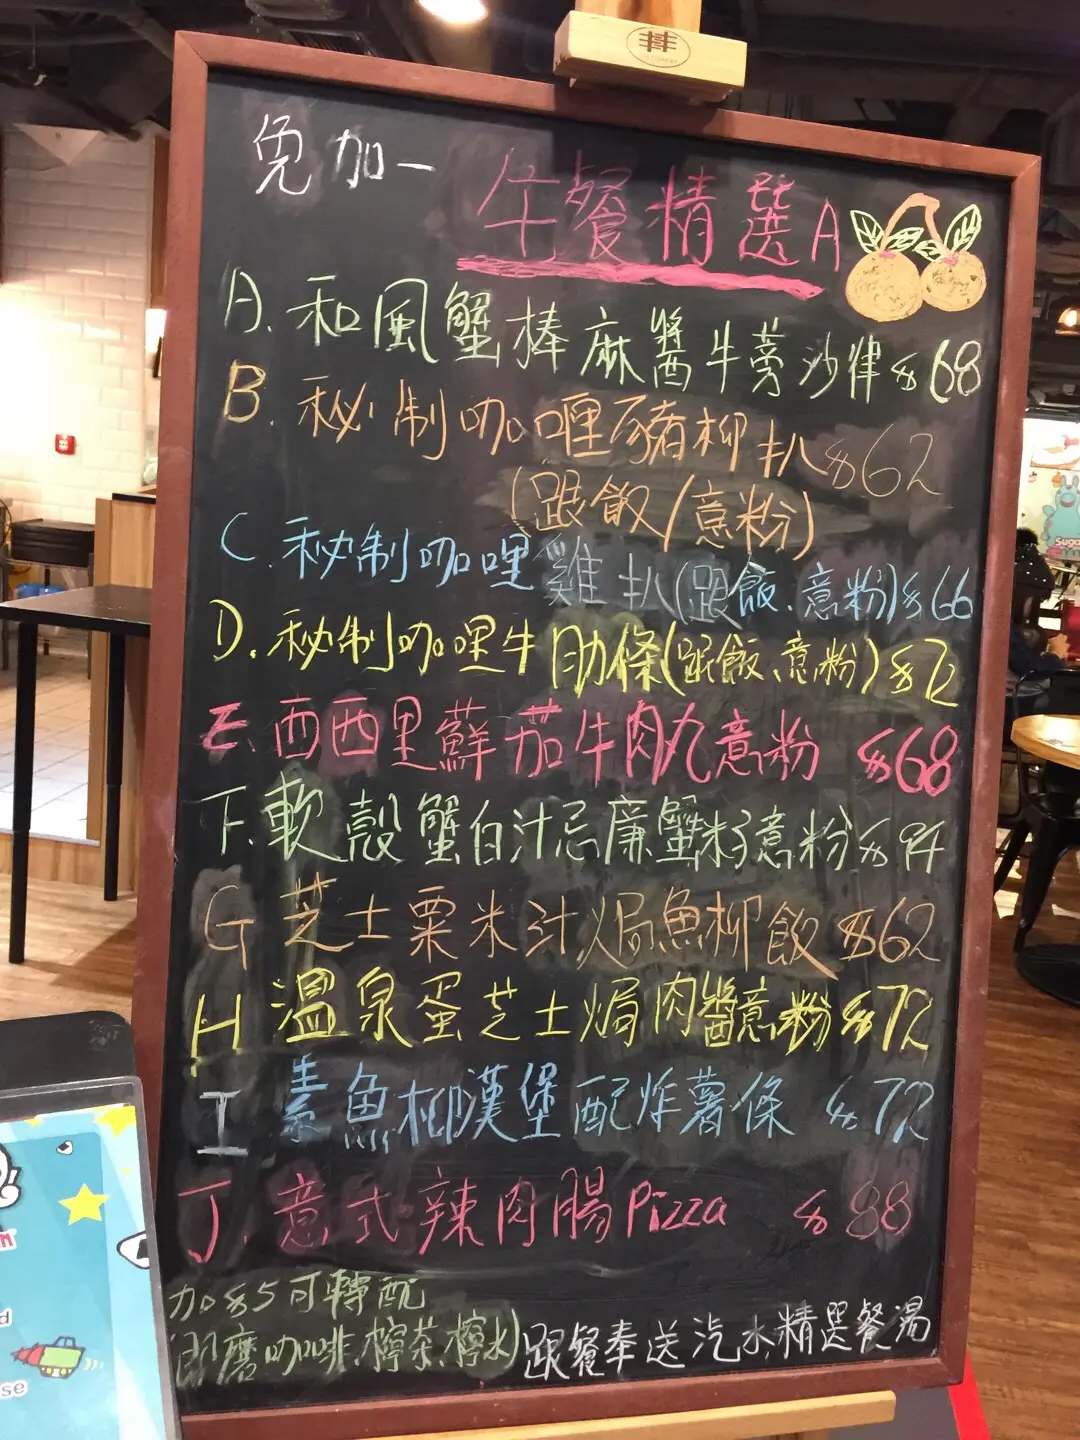 免加一
午餐精選A
A. 和風蟹棒麻醬牛蒡沙律 $68
B. 秘制咖喱豬柳扒 $62
(跟飯/意粉)
C. 秘制咖哩雞扒(跟飯、意粉) $66
D. 秘制咖哩牛肋條(跟飯、意粉) $72
E. 西西里鮮茄牛肉丸意粉 $68
F. 軟殼蟹白汁忌廉蟹籽意粉 $94
G 芝士粟米汁焗魚柳飯 $62
H 溫泉蛋芝士焗肉醬意粉 $72
I 素魚柳漢堡配炸薯條 $72
J. 意式辣肉腸Pizza $88
加$5可轉配
(即磨咖啡、檸茶、檸水)
跟餐奉送汽水,精選餐湯
Suga